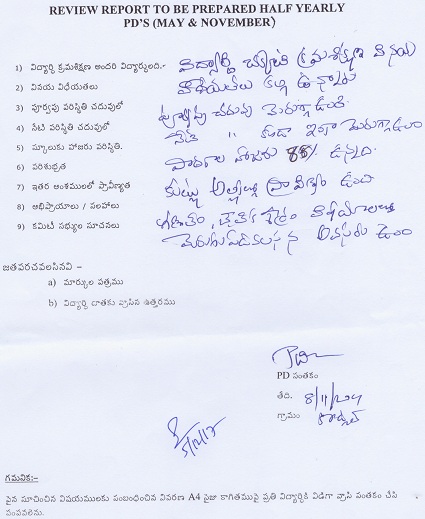 REVIEW REPORT TO BE PREPARED HALF YEARLY
PD'S (MAY & NOVEMBER)
1) విద్యార్థి క్రమశిక్షణ అందరి విద్యార్థులది:-
2) వినయ విధేయతలు
3) పూర్వపు పరిస్థితి చదువులో
4) నేటి పరిస్థితి చదువులో
5) స్కూలుకు హాజరు పరిస్థితి.
6) పరిశుభ్రత
7) ఇతర అంశములలో ప్రావీణ్యత
8) అభిప్రాయాలు / సలహాలు
9) కమిటీ సభ్యుల సూచనలు
విద్యార్థి చక్కటి క్రమశిక్షణ వినయ
విధేయతలు కల్గి ఉన్నాడు
పూర్వపు చదువు మెరుగ్గా ఉంది.
నేటి " కూడా ఇంకా మెరుగ్గా ఉంది
పాఠశాల హాజరు 88% ఉన్నది.
ప్రావీణ్యం ఉంది
గణితం,
అవసరం ఉంది
జతపరచవలసినవి -
a) మార్కుల పత్రము
b) విద్యార్థి దాతకు వ్రాసిన ఉత్తరము
PD సంతకం
తేది.
గ్రామం
గమనిక:-
పైన సూచించిన విషయములకు సంబంధించిన వివరణ A4 సైజు కాగితముపై ప్రతి విద్యార్థికి విడిగా వ్రాసి సంతకం చేసి
పంపవలెను.